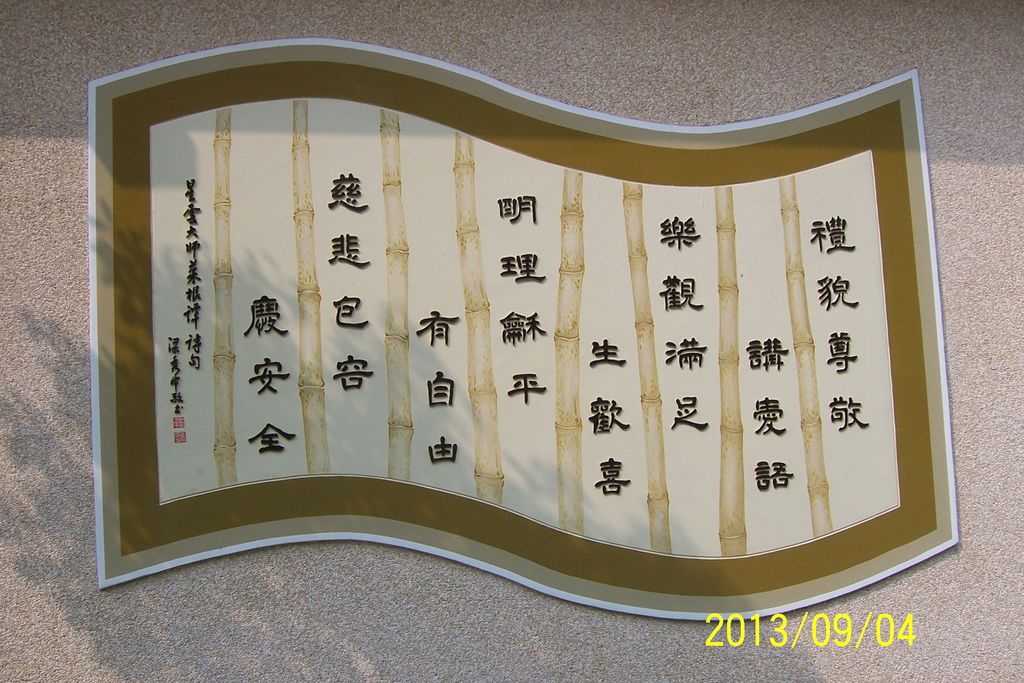 禮貌尊敬
講愛語
樂觀滿足
生歡喜
明理龢平
有自由
慈悲包容
慶安全
星雲大師菜根譚詩句
2013/09/04